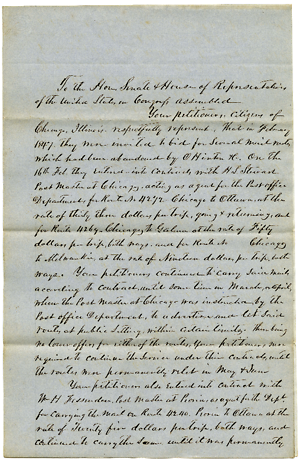 To the Hon. Senate & House of Representatives
of the United States in Congress assembled
Your petitioners, citizens of
Chicago, Illinois respectfully represent, that in February
1847, they were invited to bid for several mail routes,
which had been abandoned by O Hinton Co. On the
16th Feb. they entered into contracts with H L Stewart
Post Master at Chicago, acting as agent for the Post office
Department, for Route No 4272 Chicago to Ottawa, at the
rate of thirty three dollars per trip, going & returning, and
for Route 4264, Chicago to Galena at the rate of Fifty
dollars per trip, both ways, and for Route No Chicago
to Milwaukie, at the rate of Nineteen dollars per trip, both
ways. Your petitioners continued to carry said mails
according to contract, until some time in March,
when the Post Master at Chicago was instructed by the
Post office Department, to advertise and let said
routes, at public letting, within certain limits. There being
no lower offers for either of the routes, Your petitioners, were
required to continue the service under their contracts, until
the routes were permanently relet in May
Your petitioners also entered into contract with
Wm H Fessenden, Post Master at Peoria, as agent for the Dept.
for carrying the mail on Route Peoria to Ottawa at the
rate of Twenty five dollars per trip, both ways, and
continued to carry the same until it was permanently